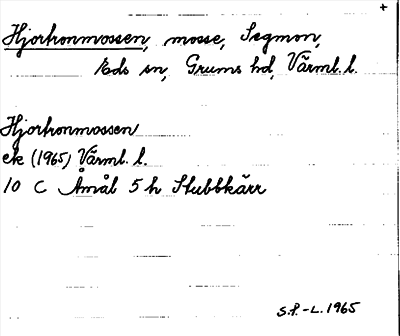 +
Hjortronmossen, mosse, Segmon,
Eds sn, Grums hd, Värml. l.
Hjortronmossen
ek (1965) Värml. l.
10 C Åmål 5 h Stubbkärr
S.P.-L. 1965